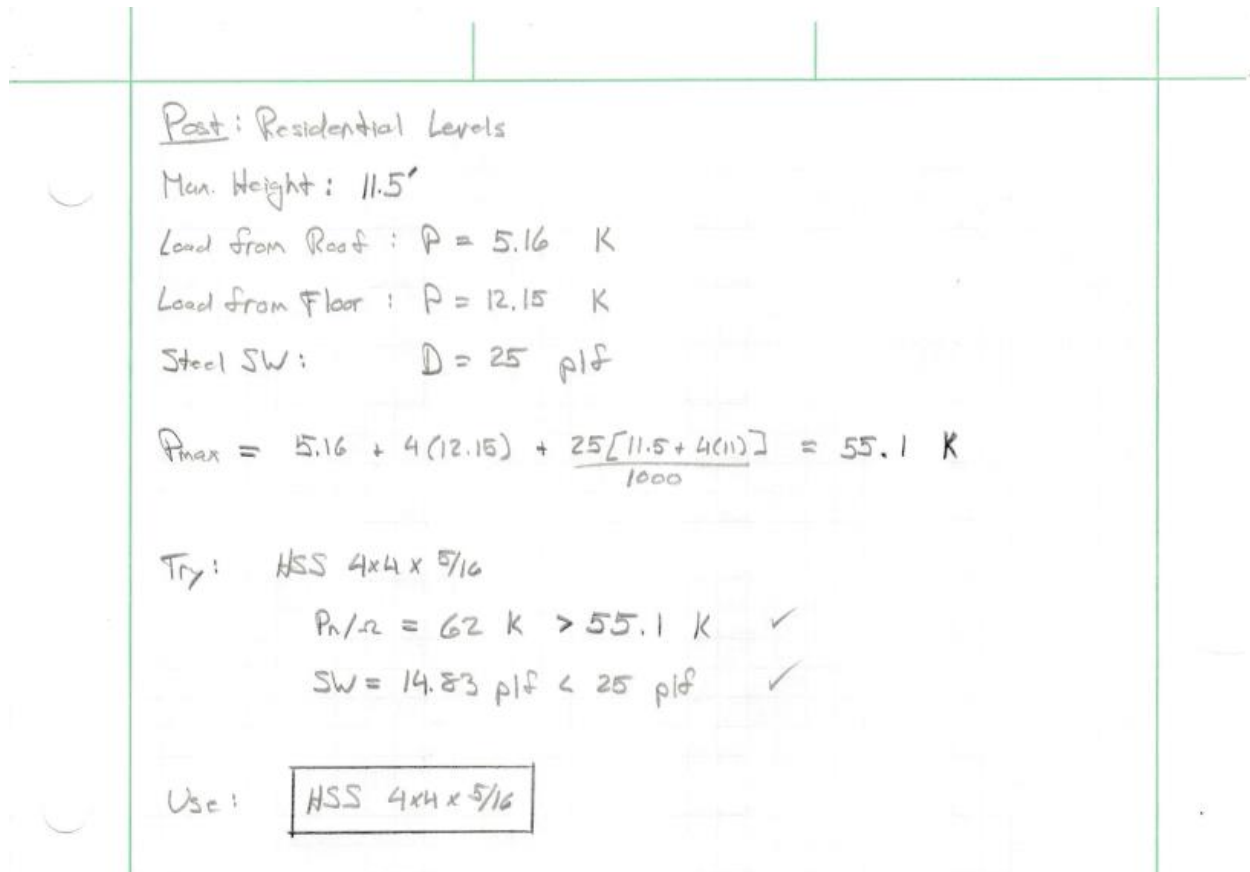 Post: Residential Levels
Max. Height: 11.5'
Load from Roof: P = 5.16 K
Load from Floor: P = 12.15 K
Steel SW: D = 25 plf
Pmax = 5.16 + 4(12.15) + 25[11.5 + 4(11)]/1000 = 55.1 K
Try: HSS 4x4 x 5/16
Pn/Ω = 62 K > 55.1 K ✓
SW = 14.83 plf < 25 plf ✓
Use: HSS 4x4 x 5/16